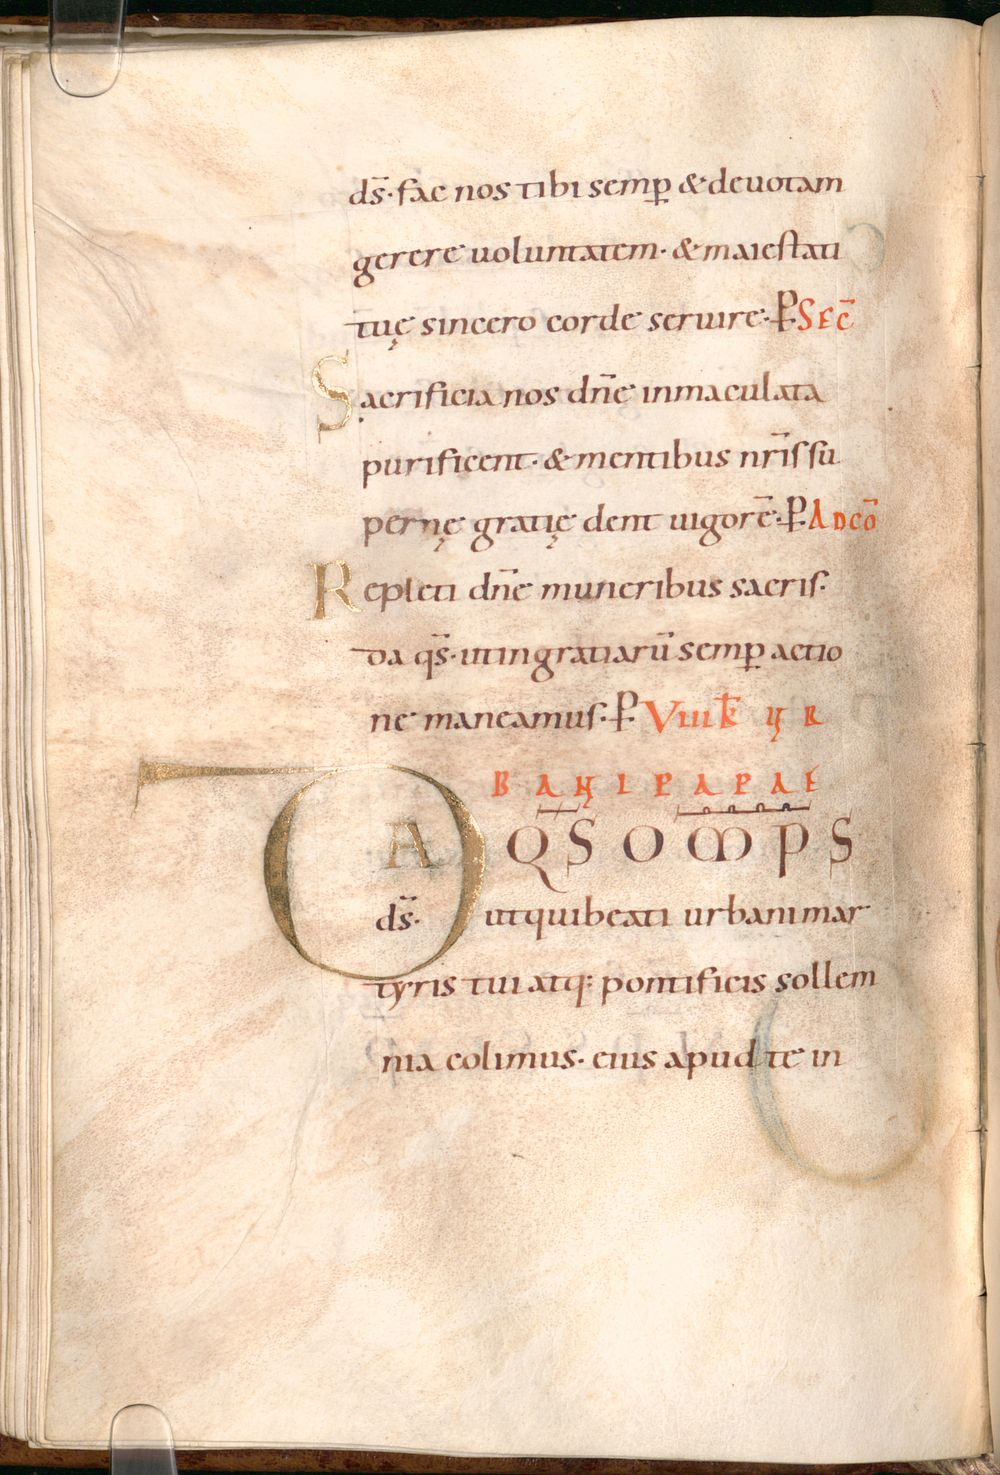 ds̄· fac nos tibi semꝑ & deuotam
gerere uoluntatem· & maiestati
tuę sincero corde seruire· P̵ SEC̄
Sacrificia nos dn̄e inmaculata
purificent· & mentibus nr̄is su
pernę gratię dent uigorē· P̵ AD CŌ
Repleti dn̄e muneribus sacris·
da qs̄· ut in gratiarū semꝑ actio
ne maneamus· P̵ VIII K̄ UR
BANI PAPAE
DA QS̄ OM̄P̄S
ds̄· ut qui beati urbani mar
tyris tui atq: pontificis sollem
nia colimus· eius apud te in